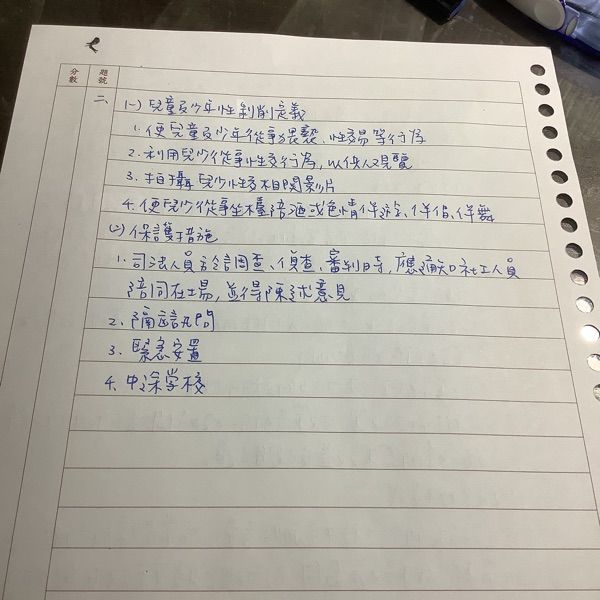 分數 題號
二、 (一) 兒童及少年性剝削定義
1. 使兒童及少年從事猥褻、性交易等行為
2. 利用兒少從事性交行為,以供人觀覽
3. 拍攝兒少性交相關影片
4. 使兒少從事坐檯陪酒或色情伴遊、伴唱、伴舞
(二) 保護措施
1. 司法人員於調查、偵查、審判時,應通知社工人員
陪同在場,並得陳述意見
2. 隔離訊問
3. 緊急安置
4. 中途学校